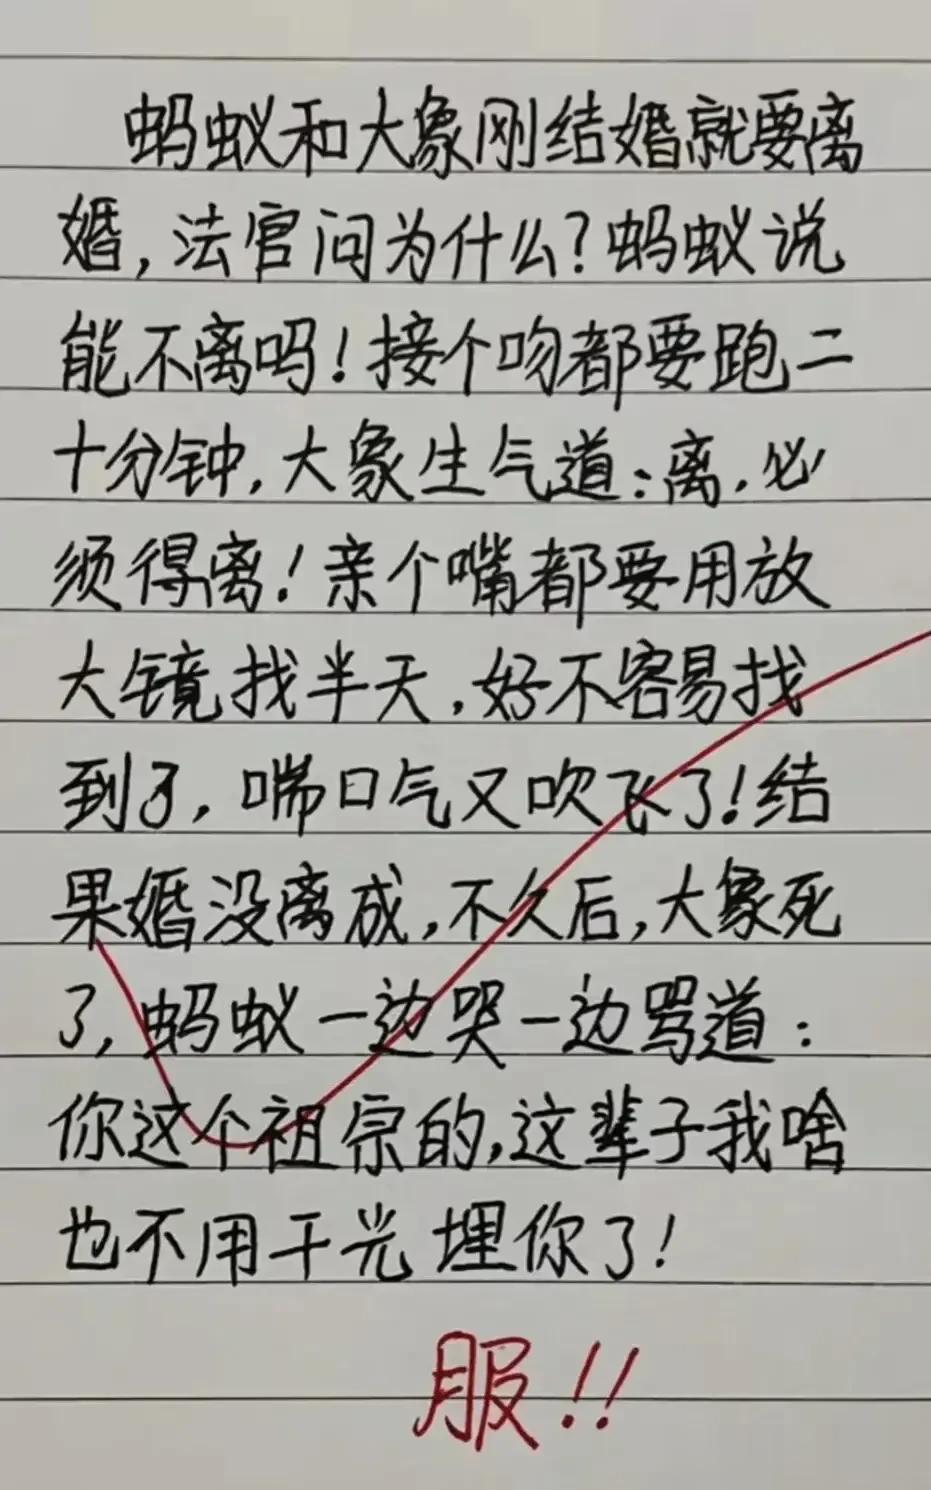 蚂蚁和大象刚结婚就要离
婚,法官问为什么?蚂蚁说
能不离吗!接个吻都要跑二
十分钟,大象生气道:离,必
须得离!亲个嘴都要用放
大镜找半天,好不容易找
到了,喘口气又吹飞了!结
果婚没离成,不久后,大象死
了,蚂蚁一边哭一边骂道:
你这个祖宗的,这辈子我啥
也不用干光埋你了!
服!!